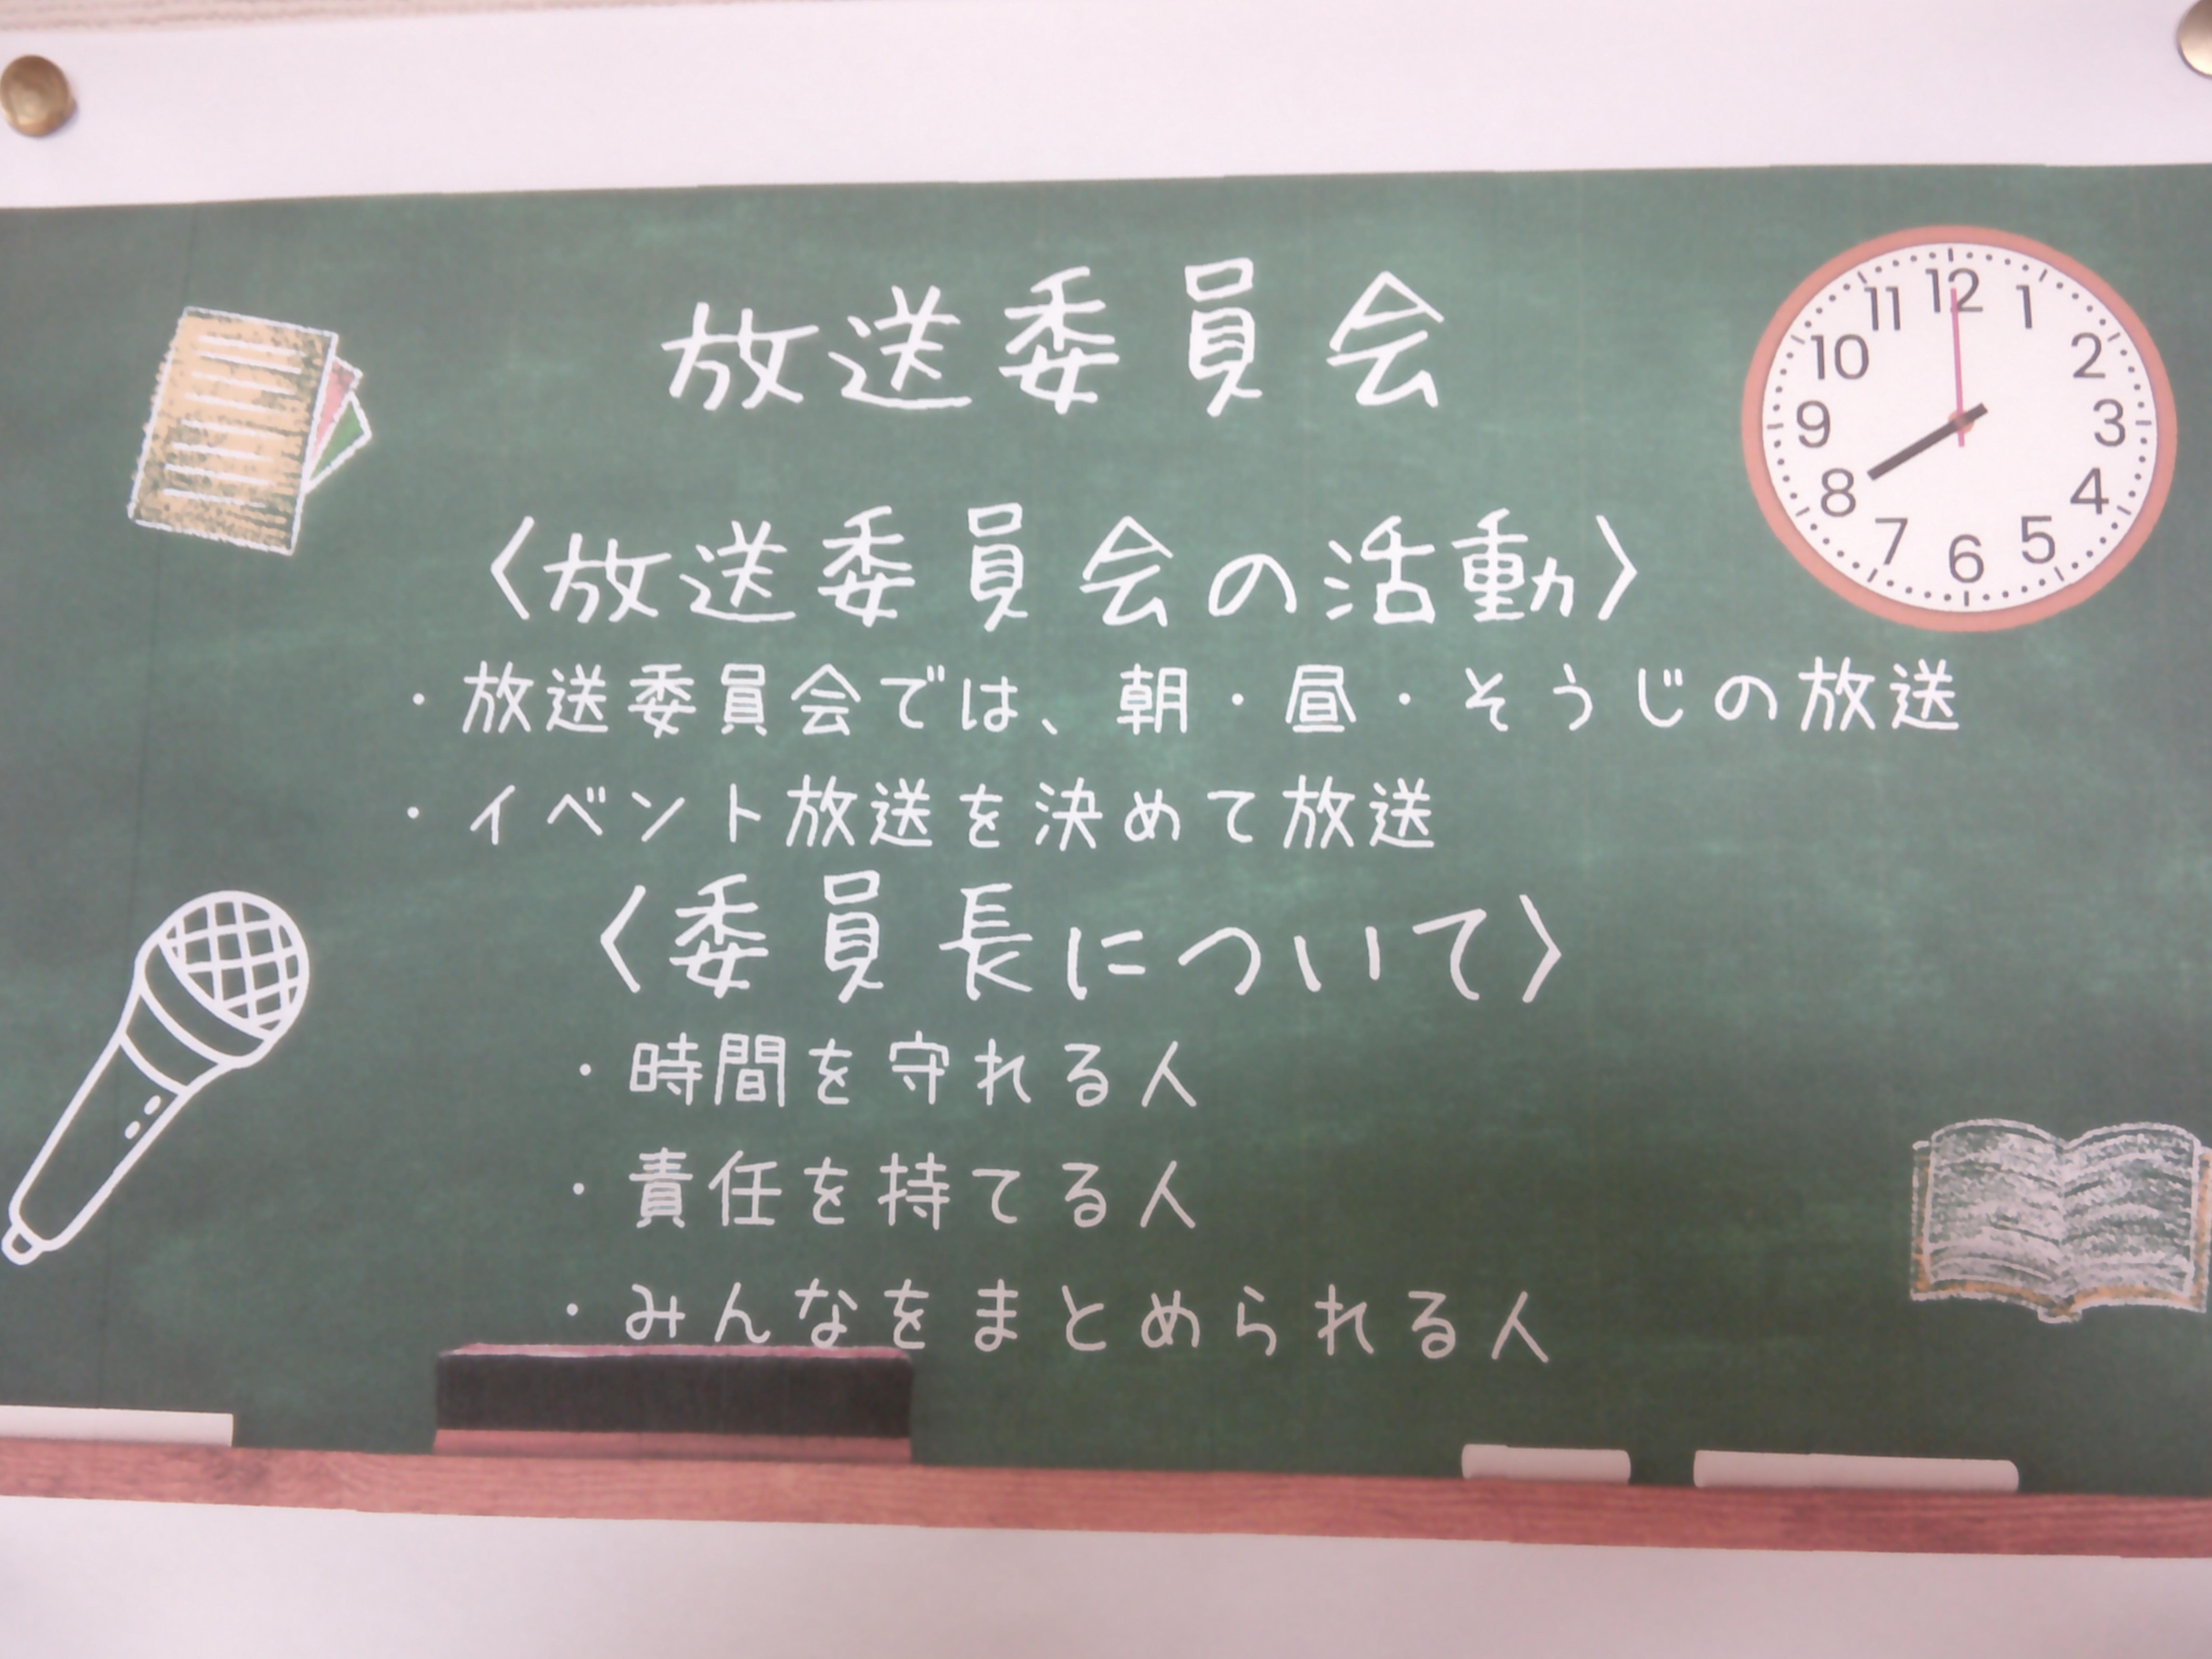 放送委員会
〈放送委員会の活動〉
・放送委員会では、朝・昼・そうじの放送
・イベント放送を決めて放送
〈委員長について〉
・時間を守れる人
・責任を持てる人
・みんなをまとめられる人
12
1
2
3
4
5
6
7
8
9
10
11